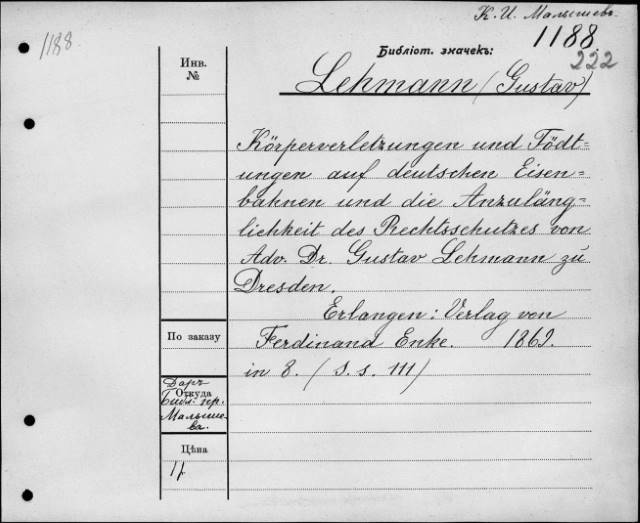 К. И. Малышевъ.
1188
1188.
Библіот. значекъ:
222
Инв.
№
Lehmann (Gustav)
Körperverletzungen und Födt=
ungen auf deutschen Eisen=
bahnen und die Anzuläng=
lichkeit des Rechtsschutzes von
Adv. Dr. Gustav Lehmann zu
Dresden.
Erlangen: Verlag von
По заказу
Ferdinand Enke. 1869.
in 8. (S. s. 111)
Даръ
Откуда
Малыше-
ва.
Цѣна